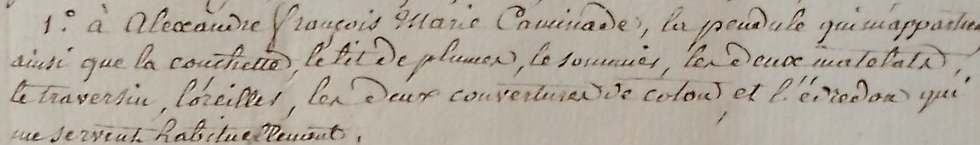 1.° à Alexandre François Marie Caminade, la pendule qui m'appartient
ainsi que la couchette, le lit de plumes, le sommier, les deux matelats,
le traversin, l'oreiller, les deux couvertures de coton et l'édredon qui
me servent habituellement.